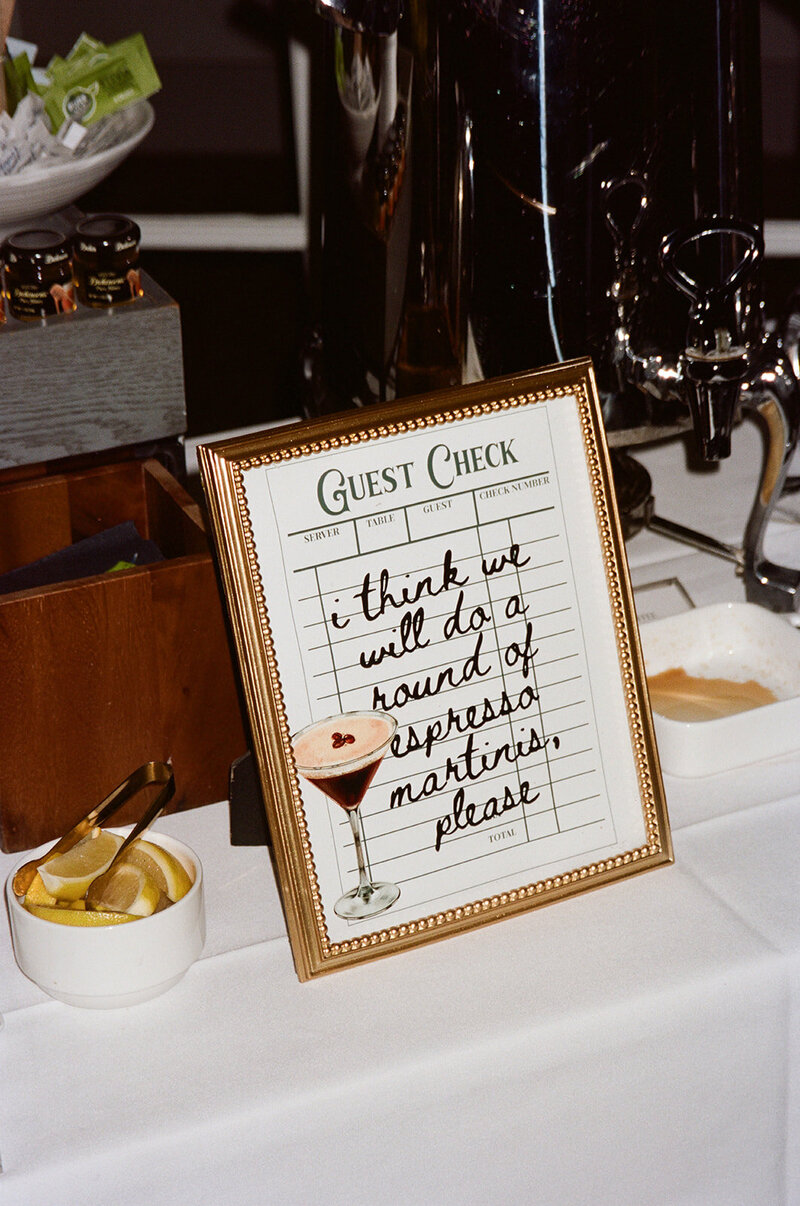 GUEST CHECK
SERVER TABLE GUEST CHECK NUMBER
i think we
will do a
round of
espresso
martinis,
please
TOTAL